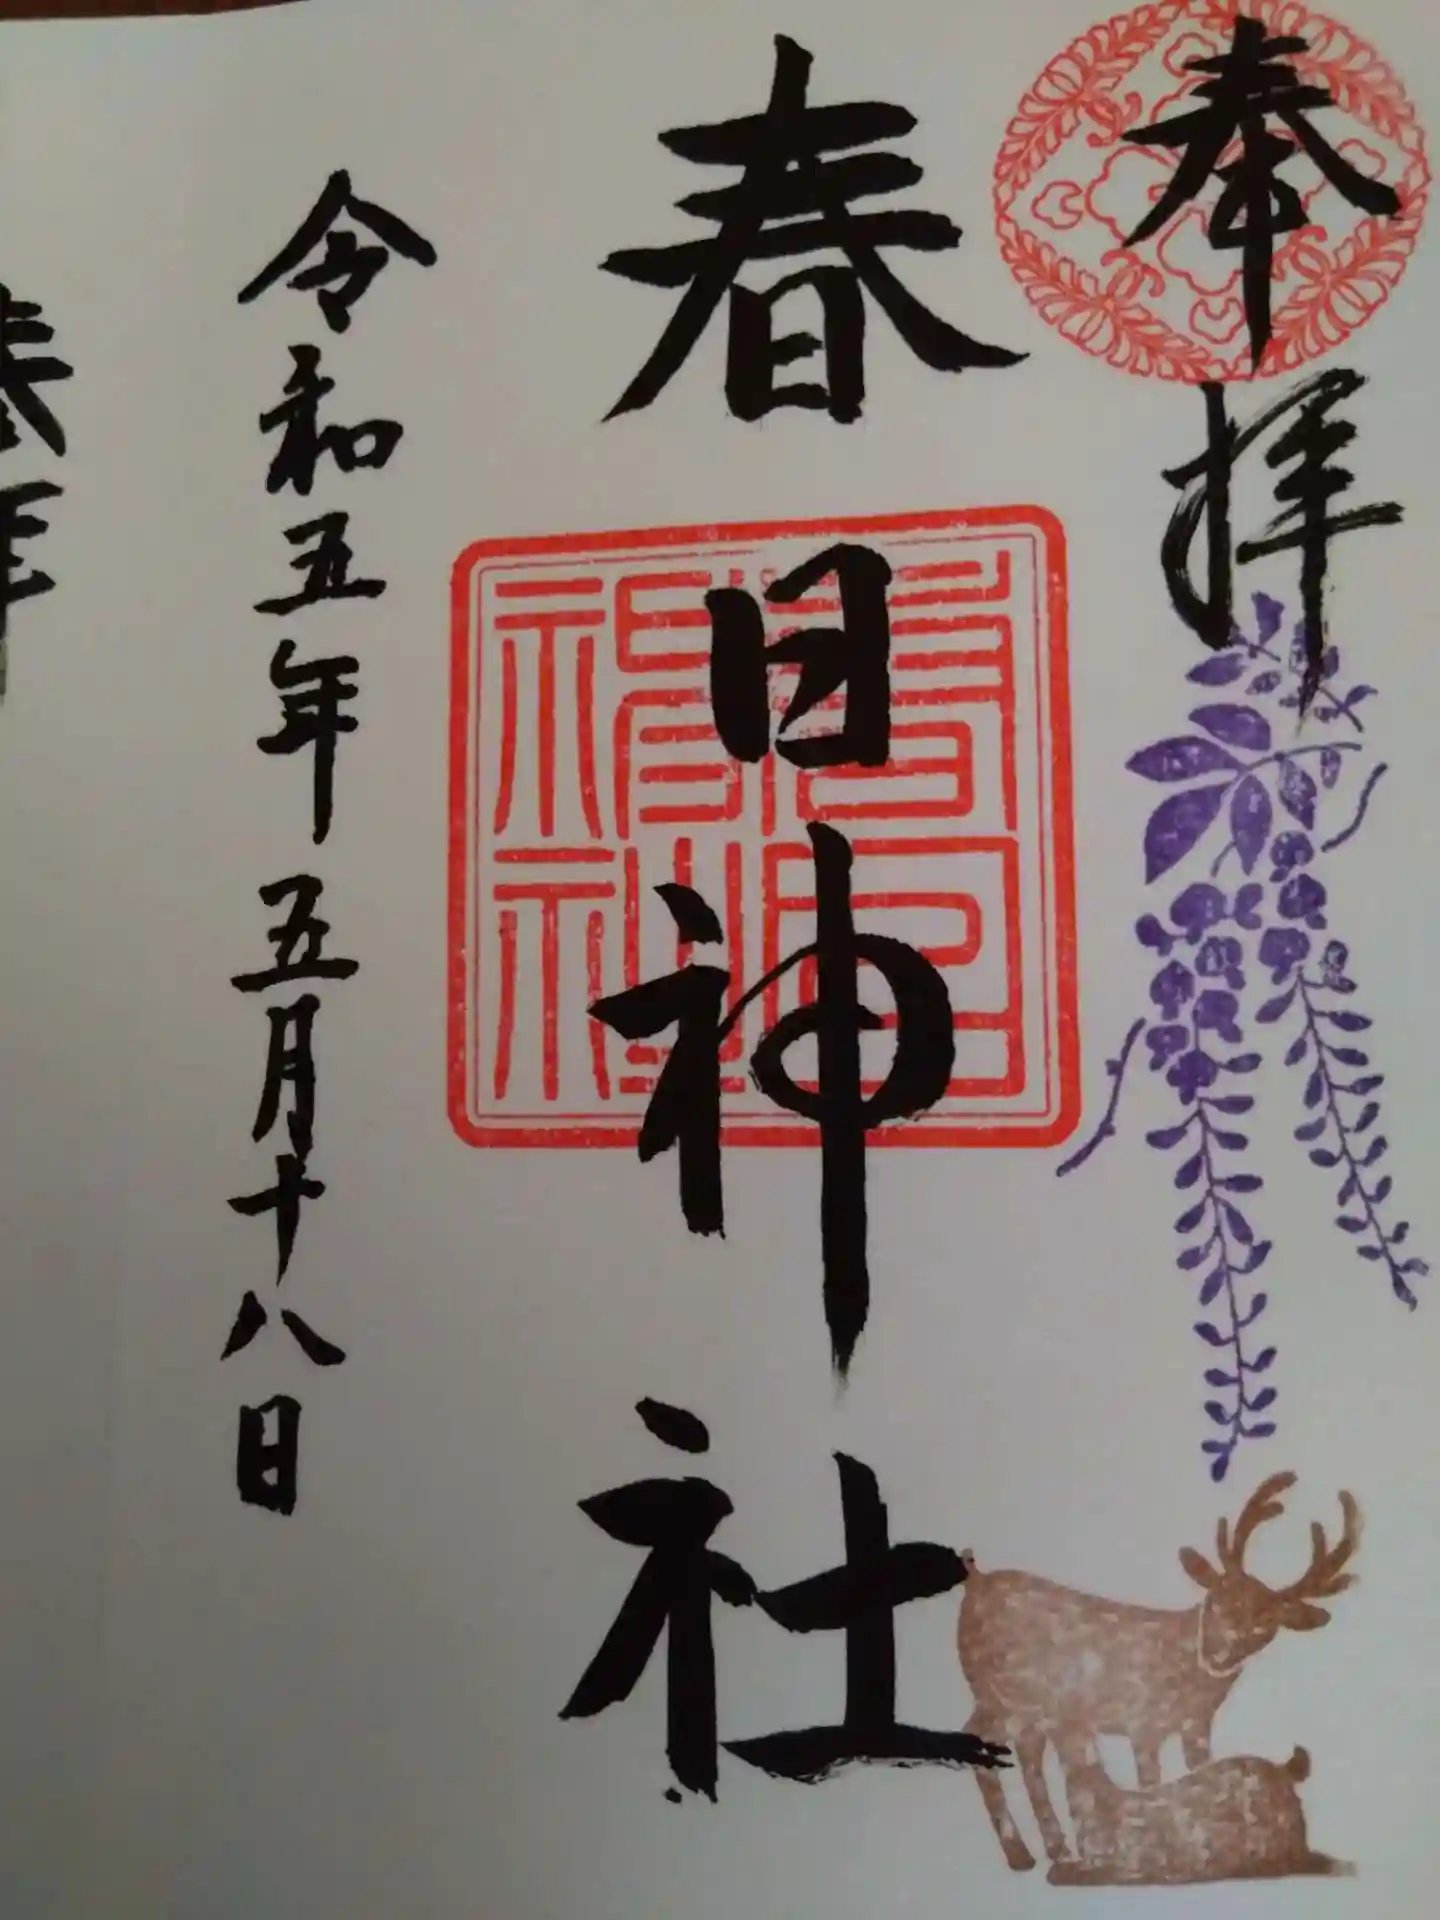 奉拝
春日神社
令和五年五月十八日